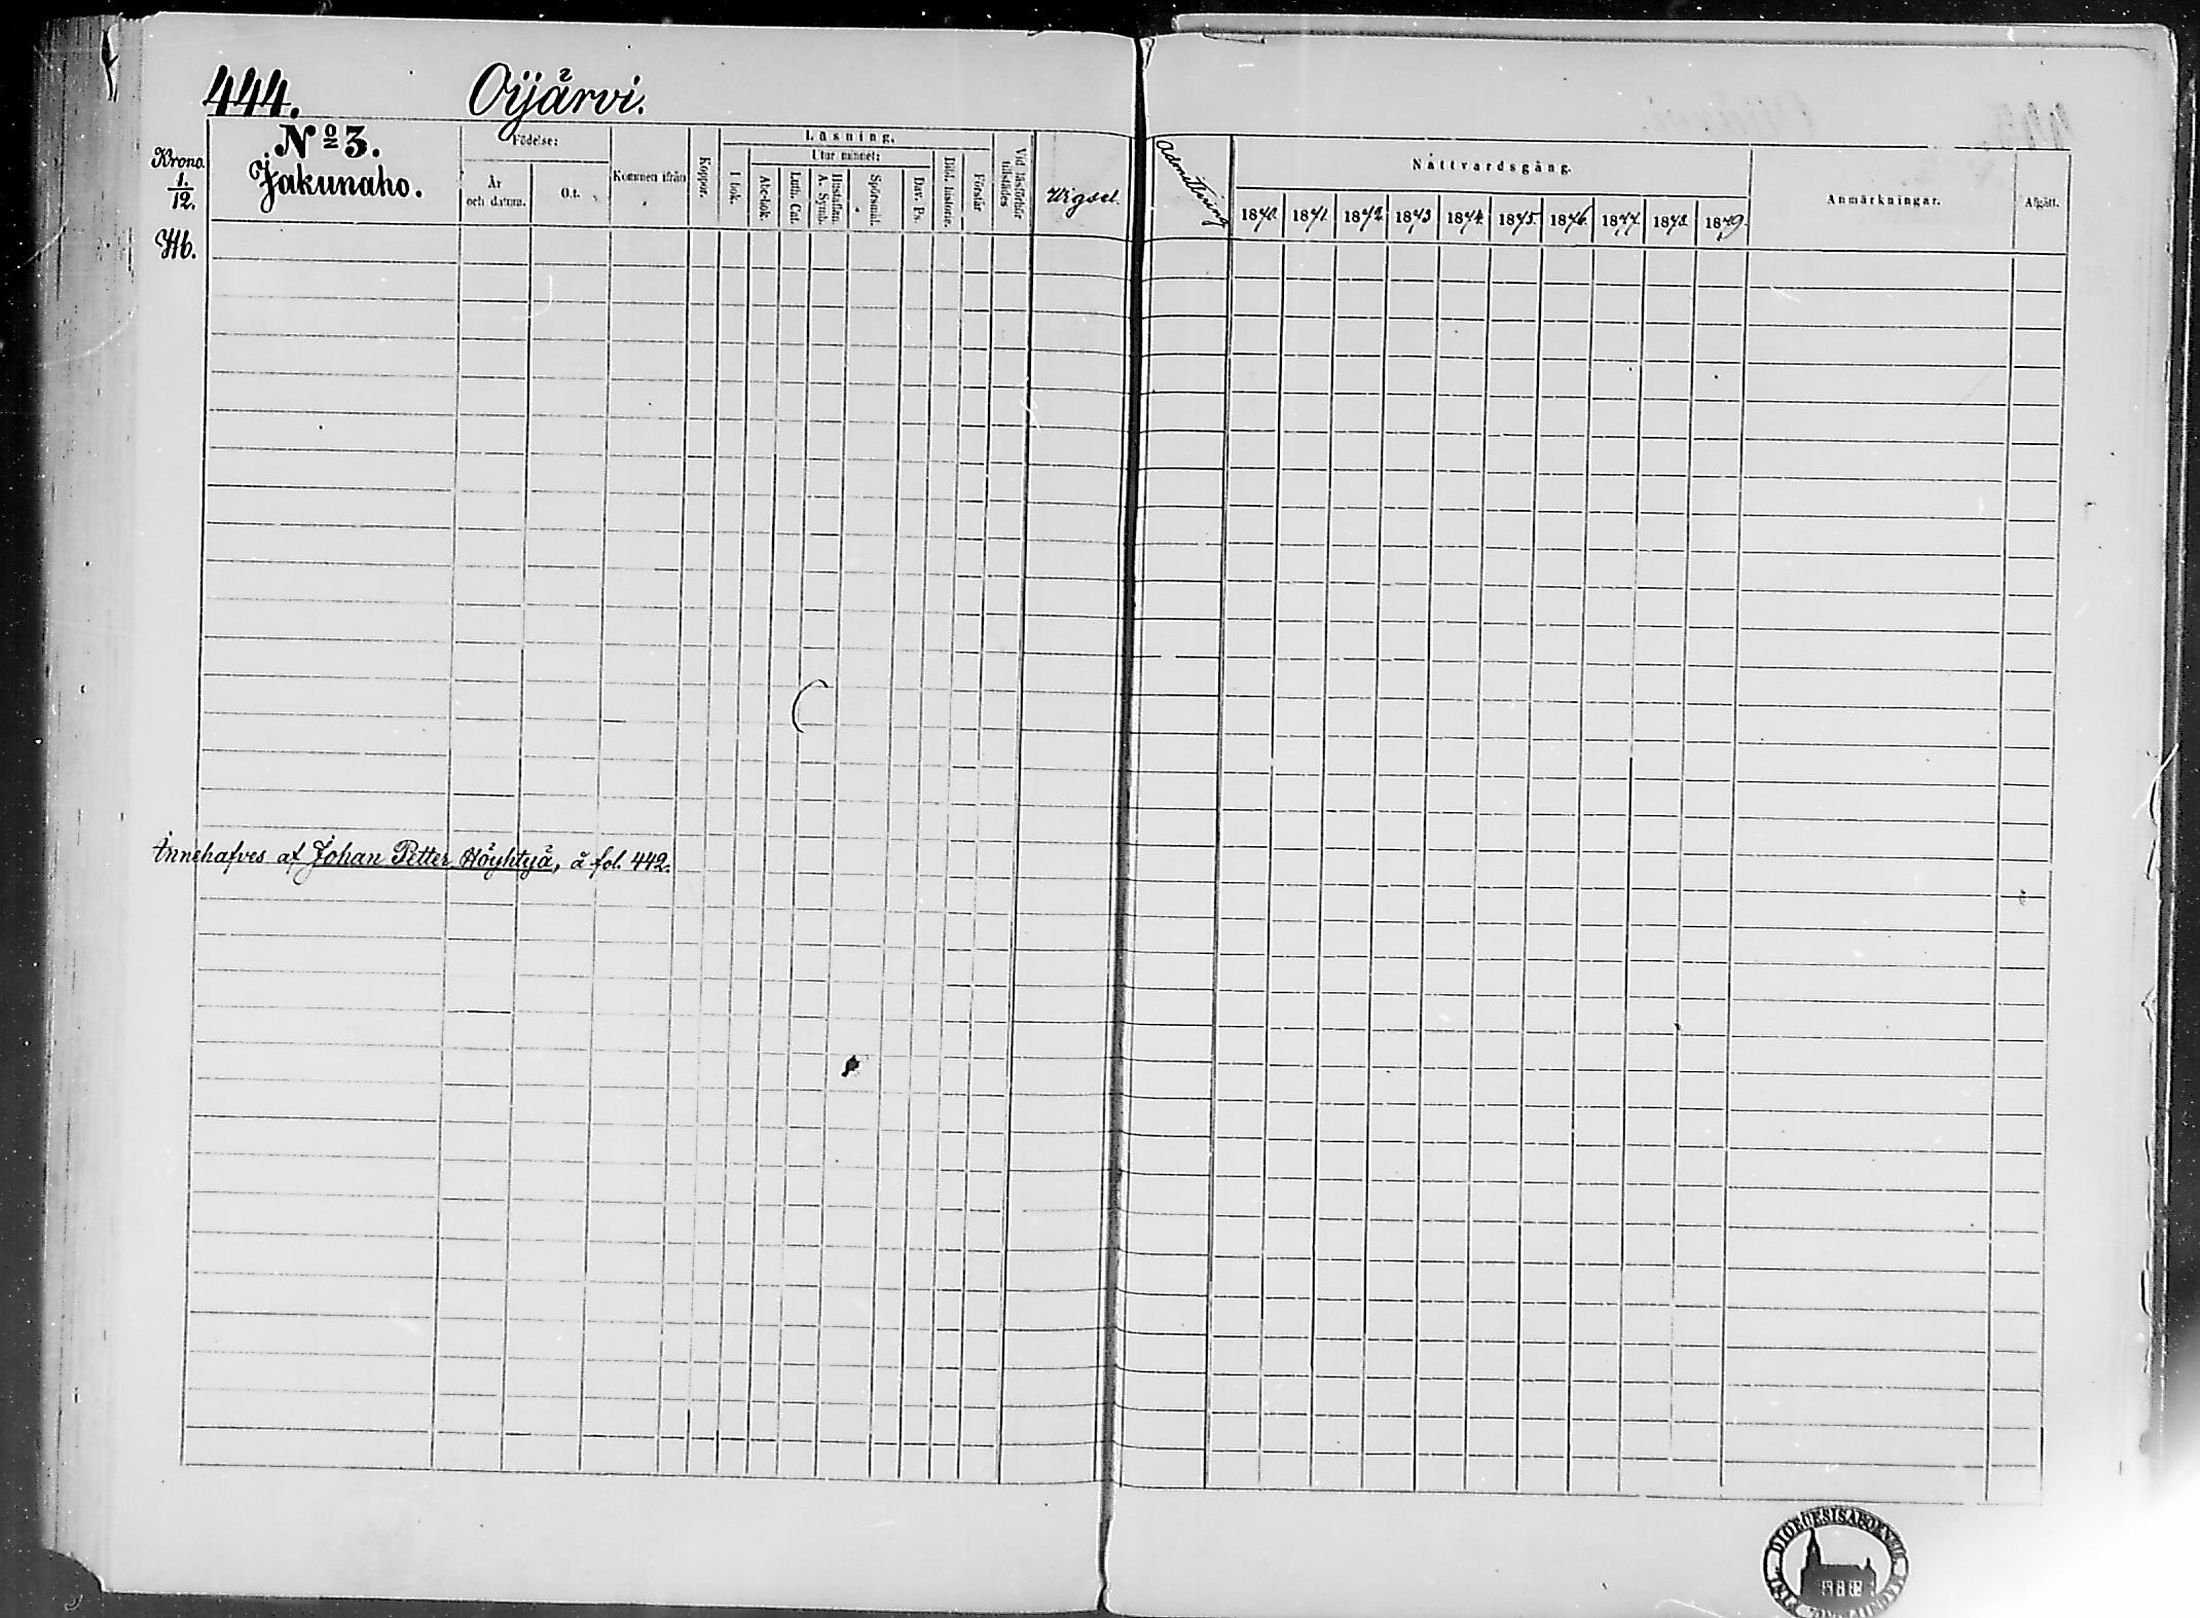 444. Oijärvi.
Krono
1.
12.
Hb.
No 3.
Jakunaho.
Födelse:
År
och datum.
Ort.
Kommen ifrån
Koppor.
Läsning.
I bok.
Utur minnet:
Abc-bok.
Luth. Cat.
Hustaflan.
A. Symb.
Spörsmål.
Dav. Ps.
Bibl. historie.
Förstår
Vid läsförhör
tillstädes
Vigsel.
Admittering
Nattvardsgång.
1840. 1841. 1842. 1843 1844. 1845. 1846. 1847. 1848. 1849.
Anmärkningar.
Afgått.
Innehafves af Johan Petter Höyhtyä, å fol. 442.